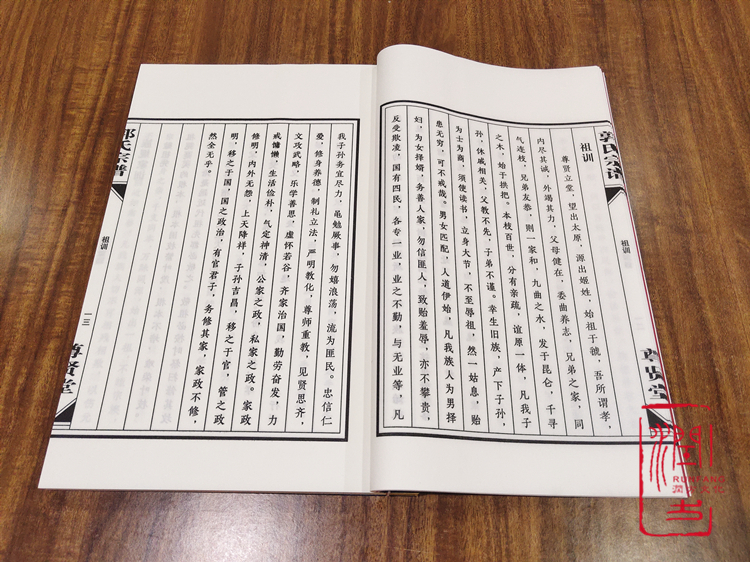 郭氏宗谱
祖训
尊贤堂
祖训
尊贤立堂，望出太原，源出姬姓，始祖于虢，吾所谓孝，
内尽其诚，外竭其力，父母健在，委曲养志，兄弟之家，同
气连枝，兄弟友恭，则一家和，九曲之水，发于昆仑，千寻
之木，始于拱把。本枝百世，分有亲疏，谊原一体，凡我子
孙，休戚相关，父教不先，子弟不谨。幸生旧族，产下子孙，
为士为商，须使读书，立身大节，不至辱祖，然一姑息，贻
患无穷，可不戒哉。男女匹配，人道伊始，凡我族人为男择
妇，为女择婿，务善人家，勿信匪人，致贻羞辱，亦不攀贵，
反受欺凌，国有四民，各专一业，业之不勤，与无业等，凡
我子孙务宜尽力，黾勉厥事，勿嬉浪荡，流为匪民。忠信仁
爱，修身养德，制礼立法，严明教化，尊师重教，见贤思齐，
文攻武略，乐学善思，虚怀若谷，齐家治国，勤劳奋发，力
戒慵懒，生活俭朴，气定神清，公家之政，私家之政。家政
修明，内外无怨，上天降祥，子孙吉昌，移之于官，管之政
明，移之于国，国之政治，有官君子，务修其家，家政不修，
然全无乎。
郭氏宗谱
祖训
一三
尊贤堂
文化